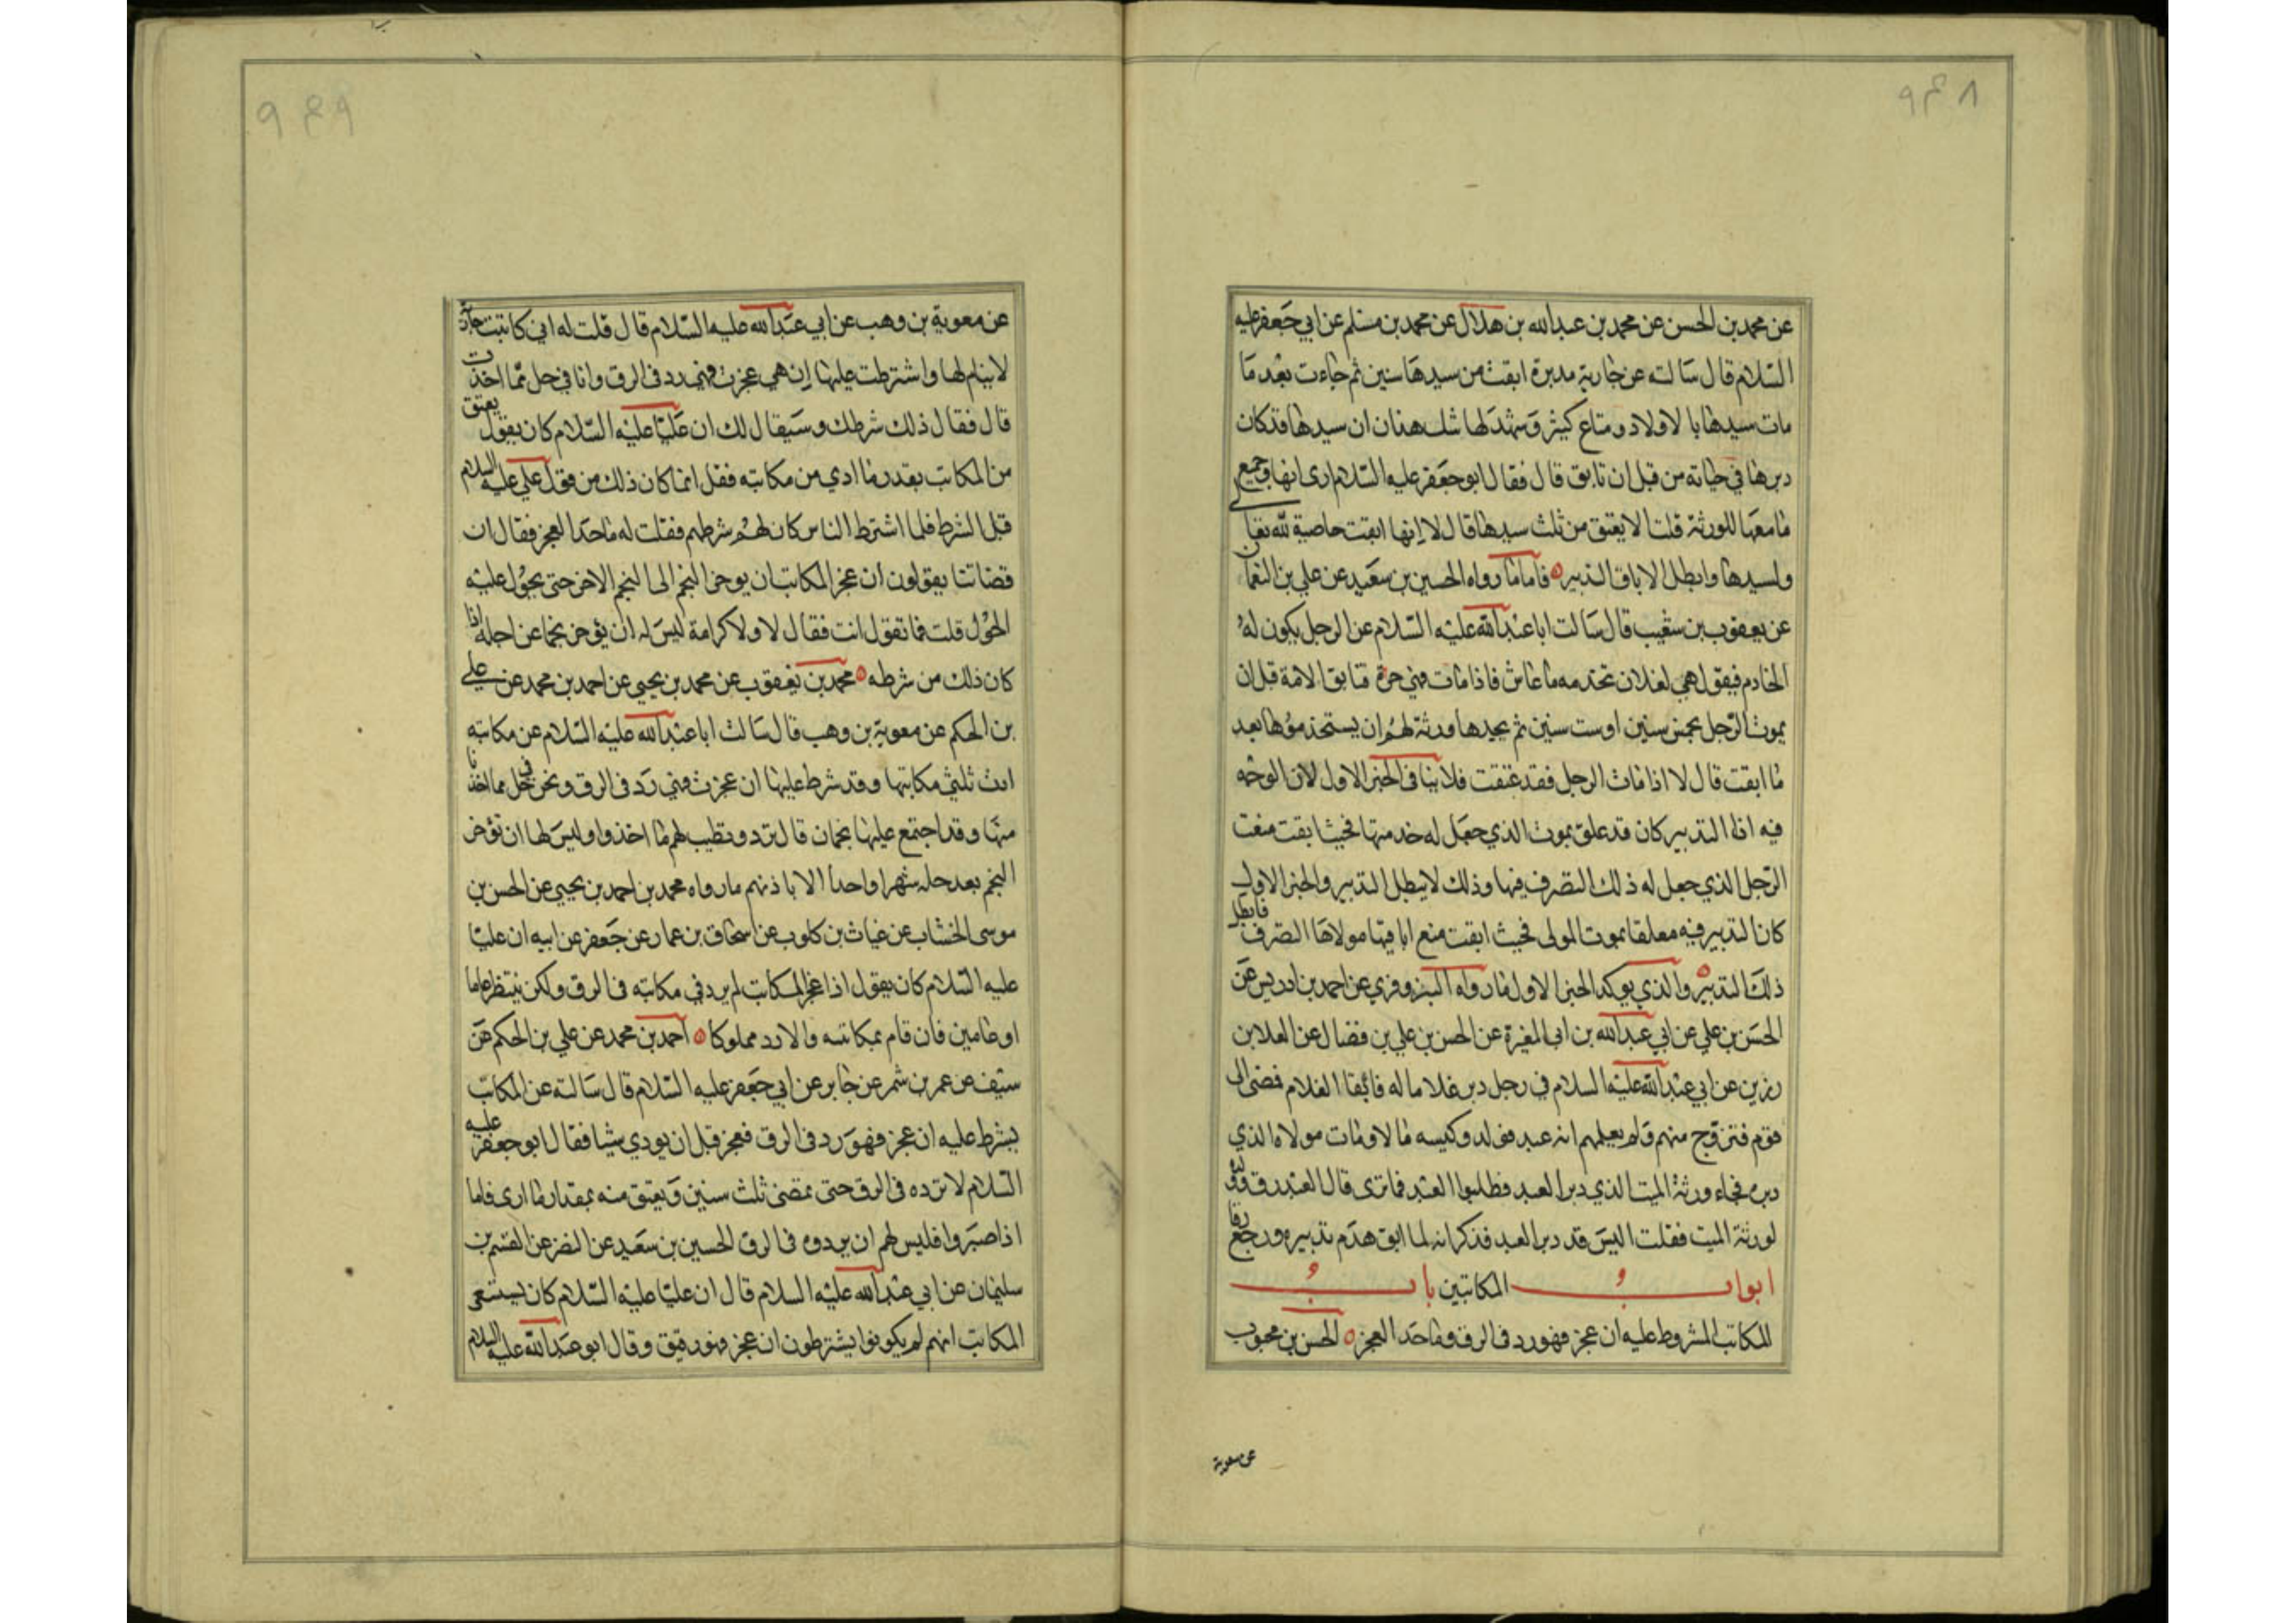 ٩٤٨
عن محمد بن الحسن عن محمد بن عبدالله بن هلال عن محمد بن مسلم عن ابي جعفر عليه
السلام قال سالته عن جارية مدبرة ابقت من سيدها سنين ثم جاءت بعد ما
مات سيدها با لاولاد ومتاع كثير وشهد لها شاهدان ان سيدها قد كان
دبرها في حياته من قبل ان تابق قال فقال ابو جعفر عليه السلام ارى انها وجميع
ما معها للورثة قلت لا يعتق من ثلث سيدها قال لا انها ابقت عاصية لله تعالى
ولسيدها وابطل الاباق التدبير ه فاما ما رواه الحسين بن سعيد عن علي بن النعمان
عن يعقوب بن شعيب قال سالت ابا عبدالله عليه السلام عن الرجل يكون له
الخادم فيقول هي لفلان تخدمه ما عاش فاذا مات فهي حرة فتابق الامة قبل ان
يموت الرجل بخمس سنين او ست سنين ثم يجدها ورثته لهم ان يستخدموها بعد
ما ابقت قال لا اذا مات الرجل فقد عتقت فلا ينافى الخبر الاول لان الوجه
فيه اذا التدبير كان قد علق بموت الذي جعل له خدمتها فحيث ابقت منعت
الرجل الذي جعل له ذلك التصرف فيها وذلك لا يبطل التدبير والخبر الاول
كان التدبير فيه معلقا بموت المولى فحيث ابقت منع اباقها مولاها التصرف فابطل
ذلك التدبير ه والذي يوكد الخبر الاول ما رواه البزوفري عن احمد بن ادريس عن
الحسن بن علي عن ابي عبدالله بن ابى المغيرة عن الحسن بن علي بن فضال عن العلا بن
رزين عن ابي عبدالله عليه السلام في رجل دبر غلاما له فابق الغلام فمضى الى
قوم فتزوج منهم ولم يعلمهم انه عبد فولد وكسب مالا ومات مولاه الذي
دبره فجاء ورثة الميت الذي دبر العبد فطلبوا العبد فما ترى قال العبد رق وولده
لورثة الميت فقلت اليس قد دبر العبد فذكر انه لما ابق هدم تدبيره ورجع رقا
ابواب المكاتبين باب
المكاتب المشروط عليه ان عجز فهو رد في الرق وما حد العجز ه الحسن بن محبوب
عن معوية
٩٤٩
عن معوية بن وهب عن ابي عبدالله عليه السلام قال قلت له اني كاتبت جارية
لايتام لها واشترطت عليها ان هي عجزت فهي رد في الرق وانا في حل مما اخذت
قال فقال ذلك شرطك وسيقال لك ان عليا عليه السلام كان يقول يعتق
من المكاتب بقدر ما ادي من مكاتبته فقل انما كان ذلك من قول علي عليه السلام
قبل الشرط فلما اشترط الناس كان لهم شرطهم فقلت له ما حد العجز فقال ان
قضاتنا يقولون ان عجز المكاتب ان يوخر النجم الى النجم الاخر حتى يحول عليه
الحول قلت فما تقول انت فقال لا ولا كرامة ليس له ان يؤخر نجما عن اجله اذا
كان ذلك من شرطه ه محمد بن يعقوب عن محمد بن يحيى عن احمد بن محمد عن علي
بن الحكم عن معوية بن وهب قال سالت ابا عبدالله عليه السلام عن مكاتبة
ادت ثلثي مكاتبتها وقد شرط عليها ان عجزت فهي رد في الرق ونحن في حل مما اخذنا
منها وقد اجتمع عليها نجمان قال ترد ويطيب لهم ما اخذوا وليس لها ان تؤخر
النجم بعد حله شهرا واحدا الا باذنهم ما رواه محمد بن احمد بن يحيى عن الحسن بن
موسى الخشاب عن غياث بن كلوب عن اسحاق بن عمار عن جعفر عن ابيه ان عليا
عليه السلام كان يقول اذا عجز المكاتب لم يرد في مكاتبته في الرق ولكن ينتظر عاما
او عامين فان قام بمكاتبته والا رد مملوكا ه احمد بن محمد عن علي بن الحكم عن
سيف عن عمر بن شمر عن جابر عن ابي جعفر عليه السلام قال سالته عن المكاتب
يشرط عليه ان عجز فهو رد في الرق فعجز قبل ان يودي شيا فقال ابو جعفر عليه
السلام لا ترده في الرق حتى يمضى ثلث سنين ويعتق منه بمقدار ما ادى فاما
اذا صبروا فليس لهم ان يردوه في الرق الحسين بن سعيد عن النضر عن القسم بن
سليمان عن ابي عبدالله عليه السلام قال ان عليا عليه السلام كان يستسعى
المكاتب انهم لم يكونوا يشترطون ان عجز فهو رقيق وقال ابو عبدالله عليه السلام